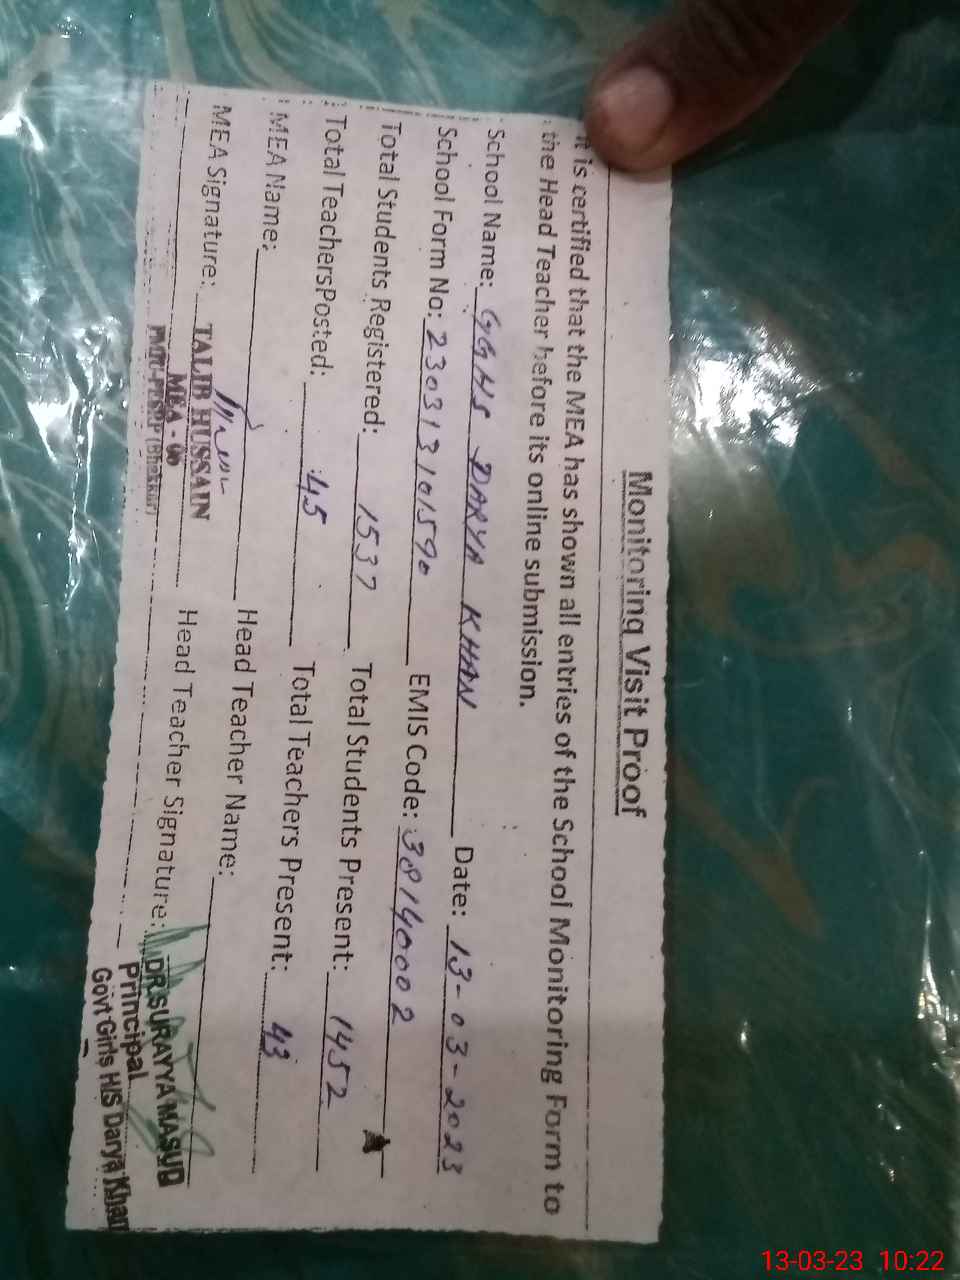 Monitoring Visit Proof
It is certified that the MEA has shown all entries of the School Monitoring Form to
the Head Teacher before its online submission.
School Name: GGHS DARYA KHAN Date: 13-03-2023
School Form No: 230313101590 EMIS Code: 38140002
Total Students Registered: 1537 Total Students Present: 1452
Total TeachersPosted: 45 Total Teachers Present: 43
MEA Name: Head Teacher Name:
MEA Signature: TALIB HUSSAIN Head Teacher Signature: DR.SURAYYA MASUD
MEA - 06 Principal
PMIU-PESRP (Bhakkar) Govt Girls H/S Darya Khan
13-03-23 10:22